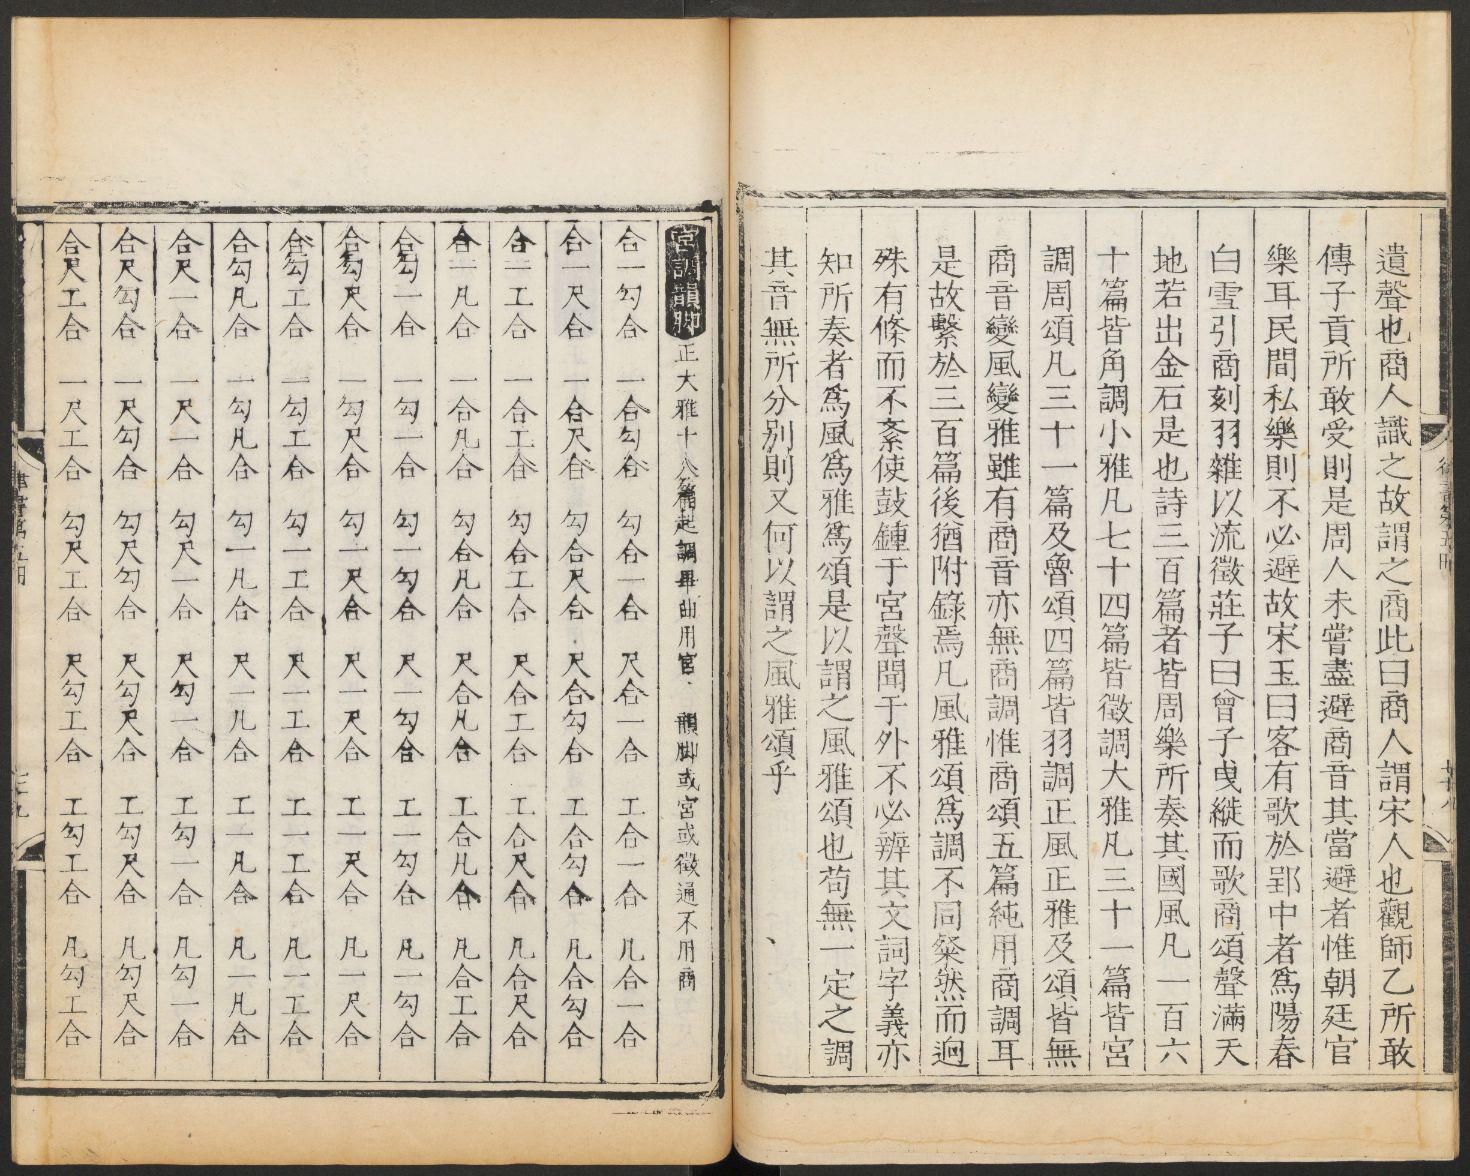 遺聲也商人識之故謂之商此曰商人謂宋人也觀師乙所敢
傳子貢所敢受則是周人未嘗盡避商音其當避者惟朝廷官
樂耳民間私樂則不必避故宋玉曰客有歌於郢中者爲陽春
白雪引商刻羽雜以流徵莊子曰曾子曳縰而歌商頌聲滿天
地若出金石是也詩三百篇者皆周樂所奏其國風凡一百六
十篇皆角調小雅凡七十四篇皆徵調大雅凡三十一篇皆宮
調周頌凡三十一篇及魯頌四篇皆羽調正風正雅及頌皆無
商音變風變雅雖有商音亦無商調惟商頌五篇純用商調耳
是故繫於三百篇後猶附錄焉凡風雅頌爲調不同粲然而迥
殊有條而不紊使鼓鍾于宮聲聞于外不必辨其文詞字義亦
知所奏者爲風爲雅爲頌是以謂之風雅頌也苟無一定之調
其音無所分別則又何以謂之風雅頌乎
宮調韻脚 正大雅十八篇起調畢曲用宮、韻脚或宮或徵通不用商
合一勾合 一合勾合 勾合一合 尺合一合 工合一合 凡合一合
合一尺合 一合尺合 勾合尺合 尺合勾合 工合勾合 凡合勾合
合一工合 一合工合 勾合工合 尺合工合 工合尺合 凡合尺合
合一凡合 一合凡合 勾合凡合 尺合凡合 工合凡合 凡合工合
合勾一合 一勾一合 勾一勾合 尺一勾合 工一勾合 凡一勾合
合勾尺合 一勾尺合 勾一尺合 尺一尺合 工一尺合 凡一尺合
合勾工合 一勾工合 勾一工合 尺一工合 工一工合 凡一工合
合勾凡合 一勾凡合 勾一凡合 尺一凡合 工一凡合 凡一凡合
合尺一合 一尺一合 勾尺一合 尺勾一合 工勾一合 凡勾一合
合尺勾合 一尺勾合 勾尺勾合 尺勾尺合 工勾尺合 凡勾尺合
合尺工合 一尺工合 勾尺工合 尺勾工合 工勾工合 凡勾工合